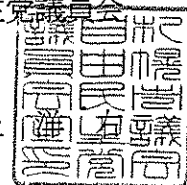 党議員会
札幌市議会
自由民主党
議員会印